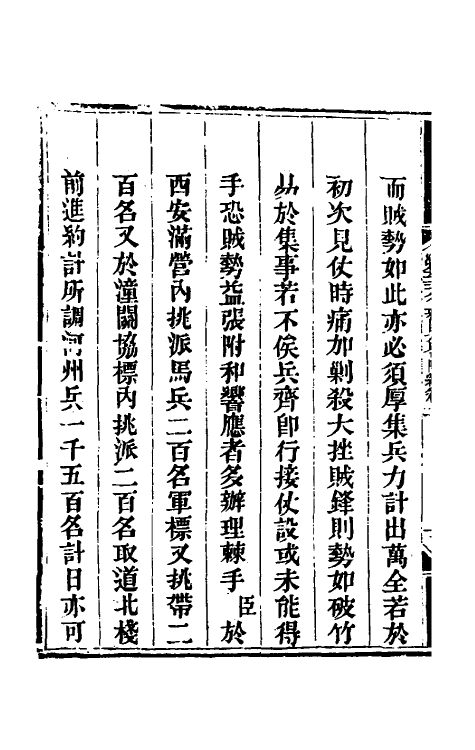 而賊勢如此亦必須厚集兵力計出萬全若於
初次見仗時痛加剿殺大挫賊鋒則勢如破竹
易於集事若不俟兵齊卽行接仗設或未能得
手恐賊勢益張附和響應者多辦理棘手臣於
西安滿營內挑派馬兵二百名軍標又挑帶二
百名又於潼關協標內挑派二百名取道北棧
前進約計所調河州兵一千五百名計日亦可